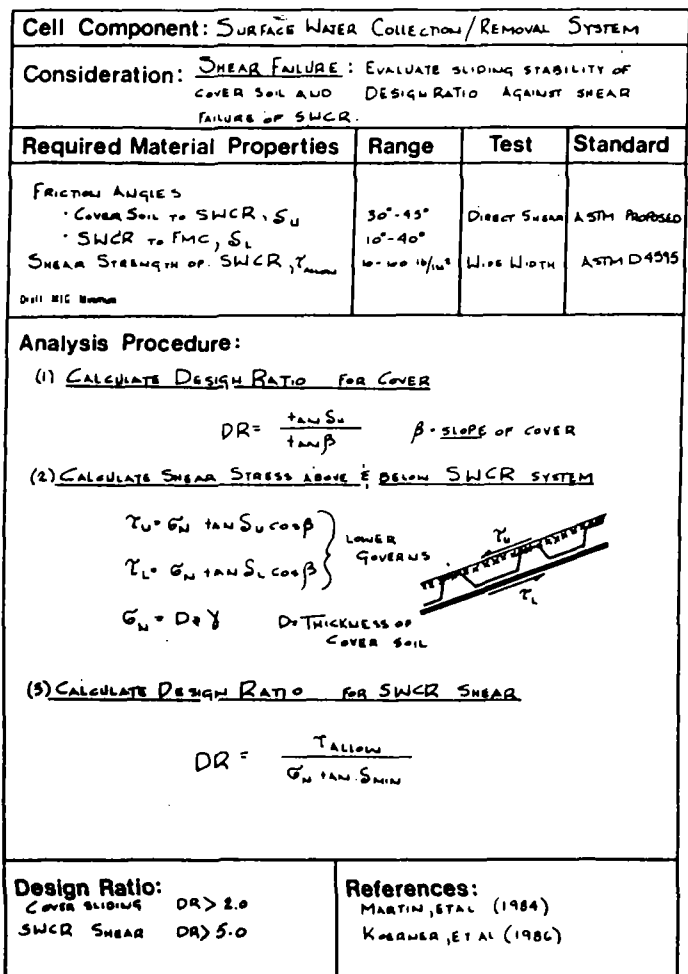 Cell Component: SURFACE WATER COLLECTION/REMOVAL SYSTEM
Consideration: SHEAR FAILURE: EVALUATE SLIDING STABILITY OF
COVER SOIL AND DESIGN RATIO AGAINST SHEAR
FAILURE OF SWCR.
Required Material Properties Range Test Standard
FRICTION ANGLES
· COVER SOIL TO SWCR, δU 30°-45° DIRECT SHEAR ASTM PROPOSED
· SWCR TO FMC, δL 10°-40°
SHEAR STRENGTH OF SWCR, τALLOW 10-100 lb/in² WIDE WIDTH ASTM D4595
Analysis Procedure:
(1) CALCULATE DESIGN RATIO FOR COVER
DR = tan δU / tan β β - SLOPE OF COVER
(2) CALCULATE SHEAR STRESS ABOVE & BELOW SWCR SYSTEM
τU = σN tan δU cos β
τL = σN tan δL cos β
LOWER
GOVERNS
τU
τL
σN = D * γ D = THICKNESS OF
COVER SOIL
(3) CALCULATE DESIGN RATIO FOR SWCR SHEAR
DR = τALLOW / σN tan δMIN
Design Ratio:
COVER SLIDING DR > 2.0
SWCR SHEAR DR > 5.0
References:
MARTIN, ET AL (1984)
KOERNER, ET AL (1986)